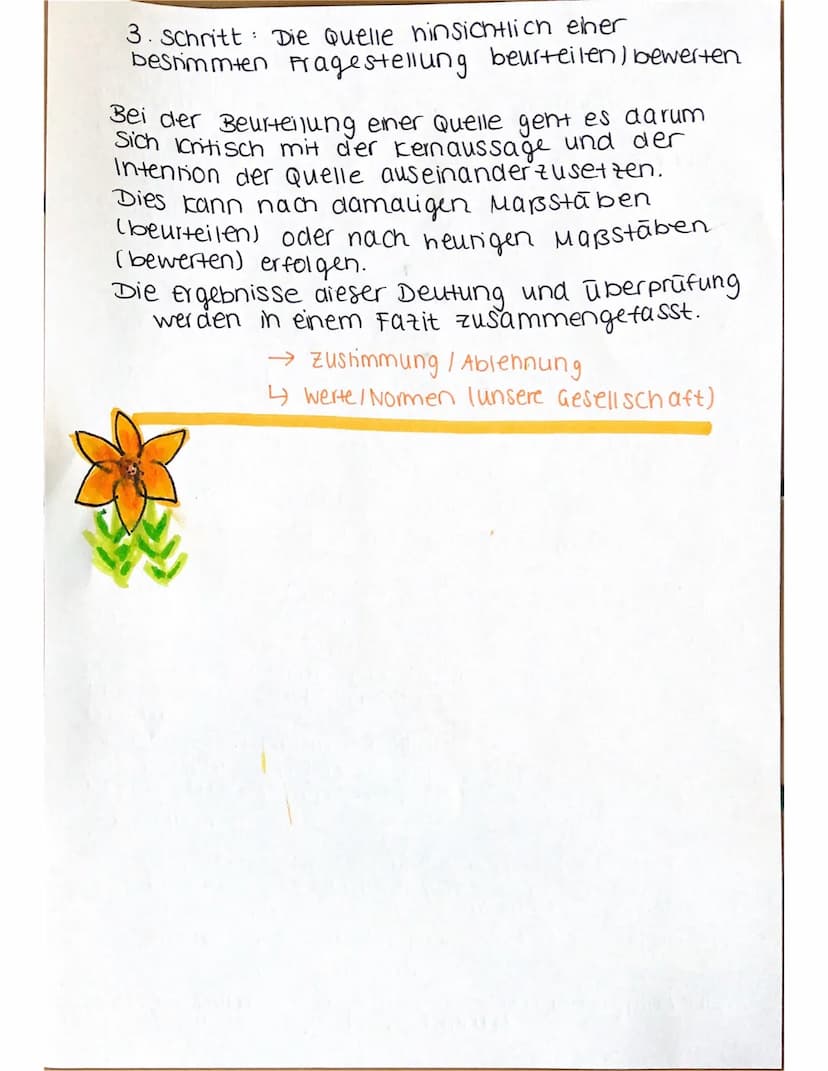 3. Schritt: Die Quelle hinsichtlich einer
bestimmten Fragestellung beurteilen/bewerten
Bei der Beurteilung einer Quelle geht es darum
sich kritisch mit der Kernaussage und der
Intention der Quelle auseinanderzusetzen.
Dies kann nach damaligen Maßstäben
(beurteilen) oder nach heutigen Maßstäben
(bewerten) erfolgen.
Die Ergebnisse dieser Deutung und Überprüfung
werden in einem Fazit zusammengefasst.
→ Zustimmung / Ablehnung
↳ Werte/Normen (unsere Gesellschaft)